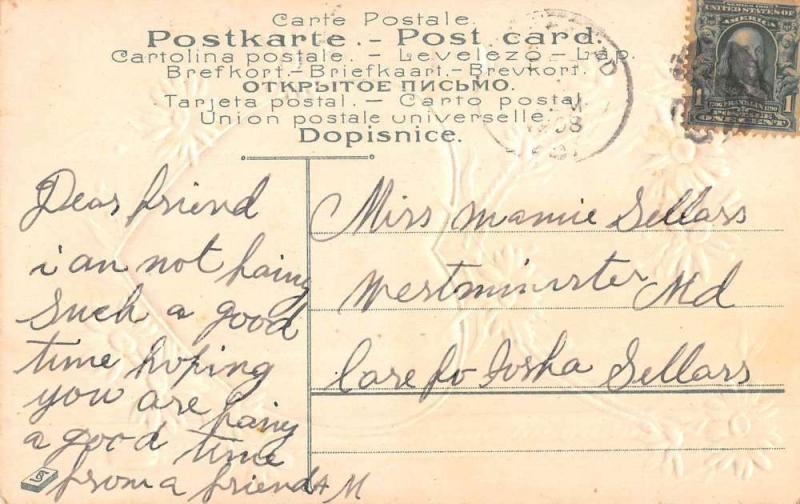 Carte Postale.
Postkarte. - Post card.
Cartolina postale. - Levelező-Lap.
Brefkort.-Briefkaart.-Brevkort.
ОТКРЫТОЕ ПИСЬМО.
Tarjeta postal. - Carto postal.
Union postale universelle.
Dopisnice.
UNITED STATES OF
AMERICA
1 1
1706 FRANKLIN 1790
POSTAGE
ONE CENT
MD
08
Dear friend
i an not haing
such a good
time hoping
you are haing
a good time
from a friend
A M
Miss mamie Sellars
Westminister Md
Care fo Sellars